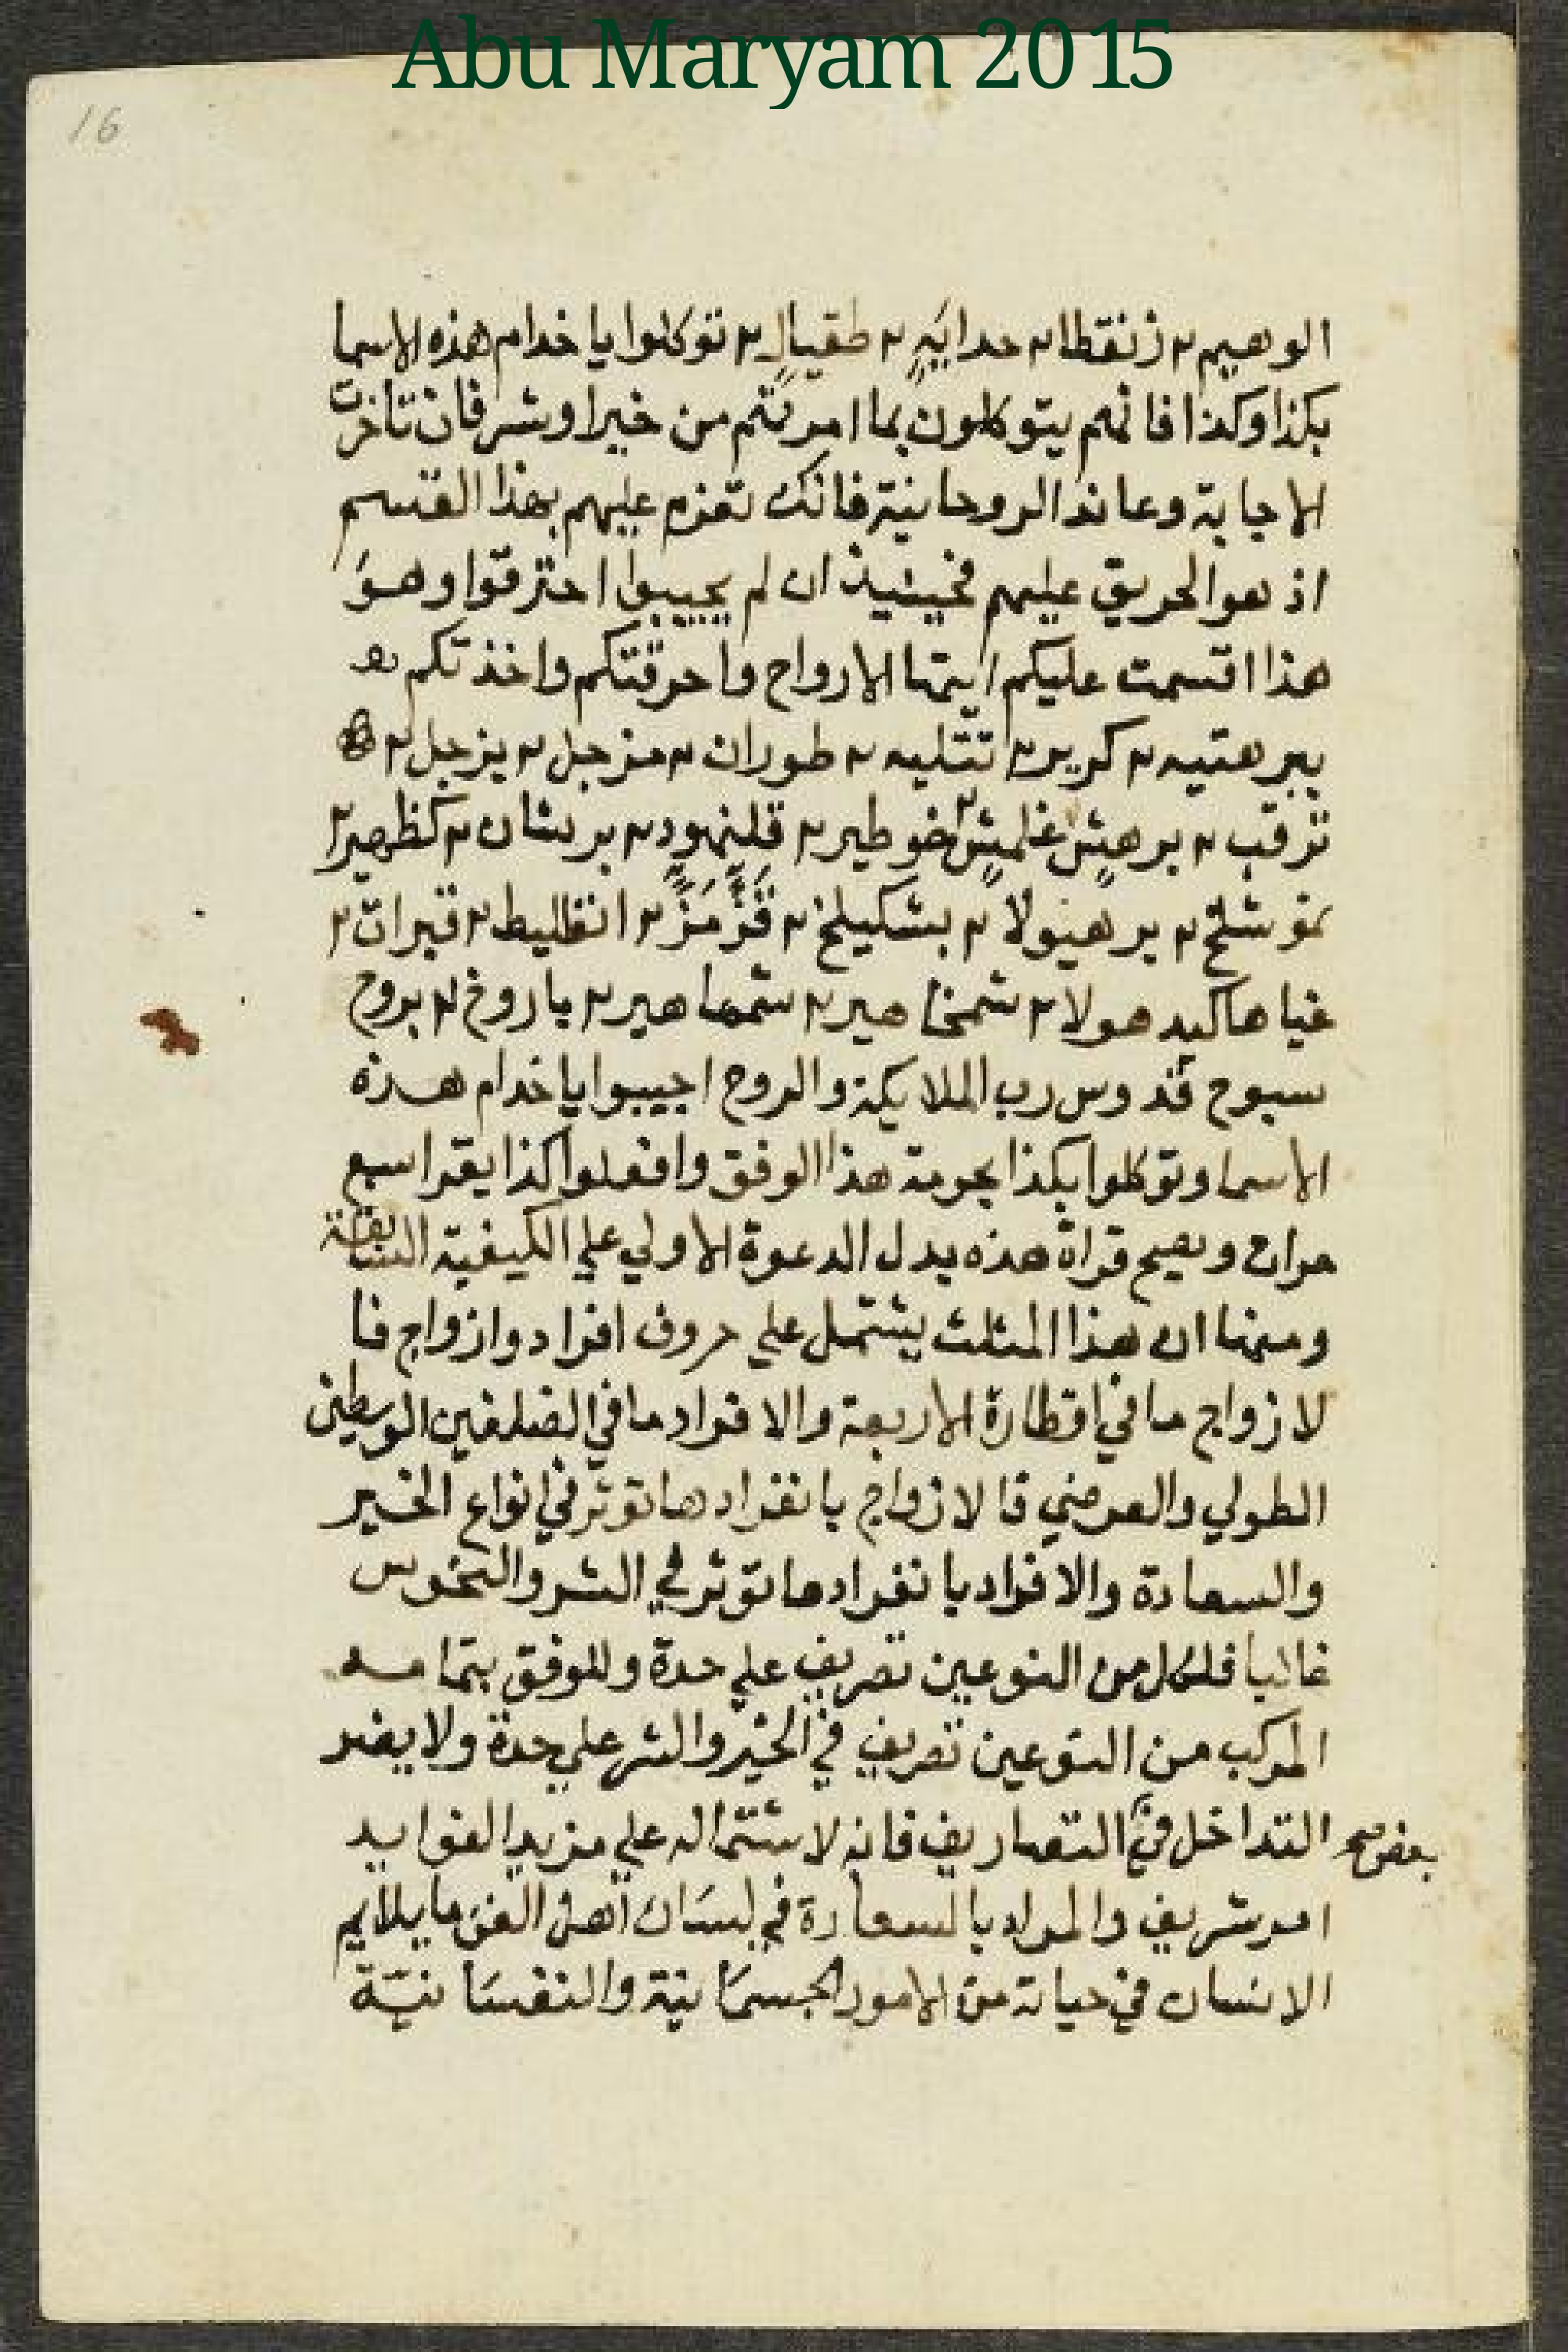 Abu Maryam 2015
16
الوهيم ٢ زنقطا ٢ حدايَهٍ ٢ طقيالٍ ٢ توكلوا يا خدام هذه الاسما
بكذا وكذا فانهم يتوكلون بما امرتهم من خير او شر فان تاخرت
الاجابة وعاند الروحانية فانك تعزم عليهم بهذا القسم
اذ هو الحريق عليهم فحينيذ ان لم يجيبوا احترقوا وهو
هذا اقسمت عليكم ايتها الارواح واحرقتكم واخذتكم
ببرهتيه ٢ كرير ٢ تتليه ٢ طوران ٢ مزجل ٢ بزجل ٢
ترقب ٢ برهش غلمش ٢ خوطير ٢ قلنهود ٢ برشان ٢ كظهير ٢
نموشلخ ٢ برهيولا ٢ بشكيلخ ٢ قَزٍّ مَزٍّ ٢ انغلليط ٢ قبرات ٢
غياها كيد هولا ٢ شمخاهير ٢ شمهاهير ٢ باروخ ٢ بروح
سبوح قدوس رب الملايكة والروح اجيبوا يا خدام هذه
الاسما وتوكلوا بكذا بحرمة هذا الوفق وافعلوا كذا يقرا سبع
مرات ويصح قراة هذه بدل الدعوة الاولي علي الكيفية السابقة
ومنها ان هذا المثلث يشتمل علي حروف افراد وازواج فا
لازواج ما في اقطارة الاربعة والافراد ما في الضلعين الوسطين
الطولي والعرضي فالازواج بانفرادها توثر في انواع الخير
والسعادة والافراد بانفرادها توثر في الشر والنحوس
غالبا فلكل من النوعين تصريف علي حدة وللوفق بتمامه
المركب من النوعين تصريف في الخير والشر علي حدة ولا يضر
التداخل في بعض صح التصاريف فانه لاشتماله علي مزيد الفوايد
امر شريف والمراد بالسعادة في لسان اهل الفن ما يلايم
الانسان في حياته من الامور الجسمانية والنفسانية